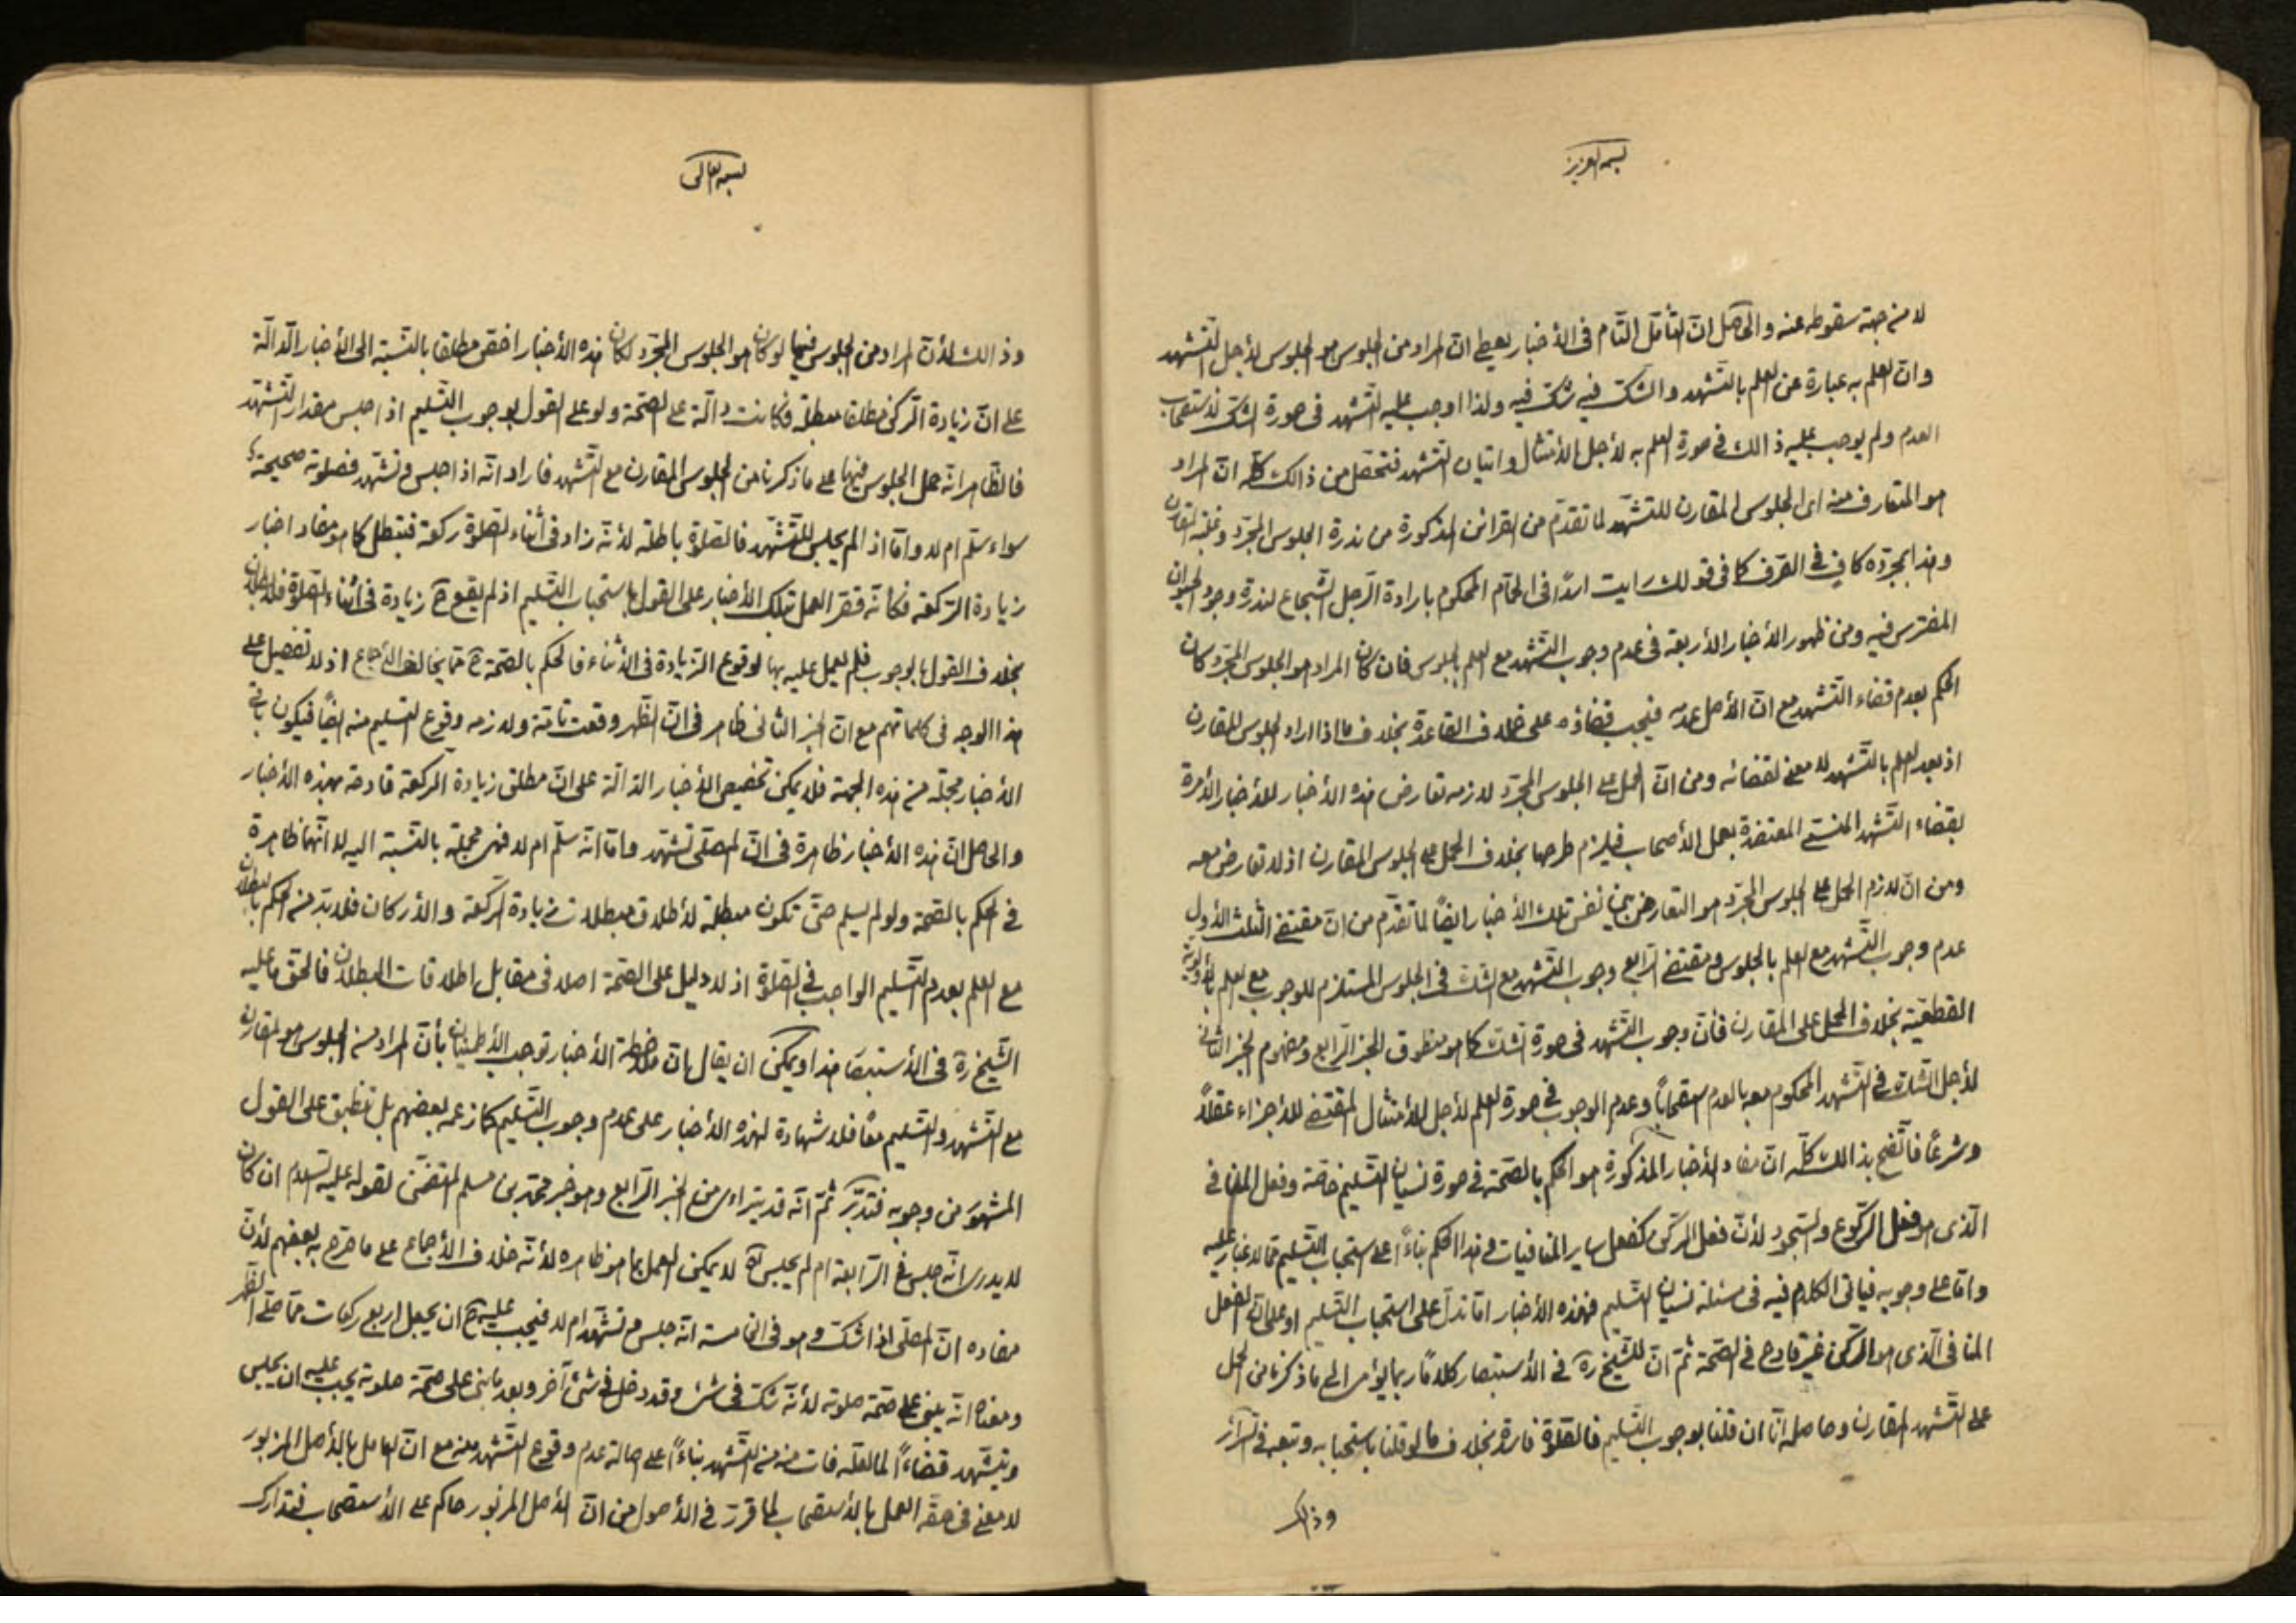 بسمه العزيز
لا من جهة سقوطه عنه والحاصل ان التأمل التام فى الأخبار يعطى ان المراد من الجلوس هو الجلوس لأجل التشهد
وان العلم به عبارة عن العلم بالتشهد والشك فيه شك فيه ولذا اوجب عليه التشهد فى صورة الشك لاستصحاب
العدم ولم يوجب عليه ذالك فى صورة العلم به لأجل الأمتثال واتيان التشهد فتحصل من ذالك كله ان المراد
هو المتعارف منه اى الجلوس المقارن للتشهد لما تقدم من القرائن المذكورة من ندرة الجلوس المجرد وغلبة المقارن
وهذا بمجرده كاف فى الصرف كما فى قولك رايت اسداً فى الحمام المحكوم بارادة الرجل الشجاع لندرة وجود الحيوان
المفترس فيه ومن ظهور الأخبار الأربعة فى عدم وجوب التشهد مع العلم بالجلوس فان كان المراد هو الجلوس المجرد كان
الحكم بعدم قضاء التشهد مع ان الأصل عدمه فيجب قضاؤه على خلاف القاعدة بخلاف ما اذا اراد الجلوس المقارن
اذ بعد العلم بالتشهد لا معنى لقضائه ومن ان الحمل على الجلوس المجرد لازمه تعارض هذه الأخبار للأخبار الأمرة
بقضاء التشهد المنسى المعتضدة بعمل الأصحاب فيلزم طرحها بخلاف الحمل على الجلوس المقارن اذ لا تعارض معه
ومن ان لازم الحمل على الجلوس المجرد هو التعارض بين نفس تلك الأخبار ايضاً لما تقدم من ان مقتضى الثلث الأول
عدم وجوب التشهد مع العلم بالجلوس ومقتضى الرابع وجوب التشهد مع الشك فى الجلوس المستلزم للوجوب مع العلم بالأولوية
القطعية بخلاف الحمل على المقارن فأن وجوب التشهد فى صورة الشك كما هو منطوق الخبر الرابع ومفهوم الخبر الثانى
لأجل الشك فى التشهد المحكوم معه بالعدم استصحاباً وعدم الوجوب فى صورة العلم لأجل الأمتثال المقتضى للأجزاء عقلاً
وشرعاً فاتضح بذالك كله ان مفاد الأخبار المذكورة هو الحكم بالصحة فى صورة نسيان التسليم خاصة وفعل المنافى
الذى هو فعل الركوع والسجود لأن فعل الركن كفعل ساير المنافيات وهذا الحكم بناءً على استحباب التسليم مما لا غبار عليه
واما على وجوبه فياتى الكلام فيه فى مسئلة نسيان التسليم فهذه الأخبار اما تدل على استحباب التسليم او على ان الفعل
المنافى الذى هو الركن غير قادح فى الصحة ثم ان للشيخ ره فى الأستبصار كلاماً ربما يؤمى الى ما ذكرنا من الحمل
على التشهد المقارن وحاصله انا ان قلنا بوجوب التسليم فالصلوة فاسدة بخلاف ما لو قلنا باستحبابه وتبعه فى السرائر
وذالك
بسمه تعالى
وذالك لأن المراد من الجلوس فيها لو كان هو الجلوس المجرد لكان هذه الأخبار اخص مطلقا بالنسبة الى الأخبار الدالة
على ان زيادة الركن مطلقا مبطلة فكانت دالة على الصحة ولو على القول بوجوب التسليم اذا جلس مقدار التشهد
فالظاهر انه حمل الجلوس فيها على ما ذكرنا من الجلوس المقارن مع التشهد فاراد انه اذا جلس وتشهد فصلوته صحيحة
سواء سلم ام لا واما اذا لم يجلس للتشهد فالصلوة باطلة لأنه زاد فى أثناء الصلوة ركعة فتبطل كما هو مفاد اخبار
زيادة الركعة فكانه قصر العمل بتلك الأخبار على القول باستحباب التسليم اذ لم يقع ح زيادة فى أثناء الصلوة
بخلاف القول بالوجوب فلم يعمل عليه بها لوقوع الزيادة فى الأثناء فالحكم بالصحة ح مما يخالف الأجماع اذ لا تفصيل على
هذا الوجه فى كلماتهم مع ان الخبر الثانى ظاهر فى ان الظهر وقعت تامة ولازمه وقوع التسليم منه ايضاً فيكون باقى
الأخبار مجملة من هذه الجهة فلا يمكن تخصيص الأخبار الدالة على ان مطلق زيادة الركعة قادحة بهذه الأخبار
والحاصل ان هذه الأخبار ظاهرة فى ان المصلى تشهد واما انه سلم ام لا فهى مجملة بالنسبة اليه لا انها ظاهرة
فى الحكم بالصحة ولو لم يسلم حتى تكون مبطلة لأطلاق مبطلات زيادة الركعة والأركان فلا بد من الحكم بالبطلان
مع العلم بعدم التسليم الواجب فى الصلوة اذ لا دليل على الصحة اصلا فى مقابل اطلاقات البطلان فالحق ما عليه
الشيخ ره فى الأستبصار هذا ويمكن ان يقال بان ملاحظة الأخبار توجب الأطمينان بأن المراد من الجلوس هو المقارن
مع التشهد والتسليم معًا فلا شهادة لهذه الأخبار على عدم وجوب التسليم كما زعمه بعضهم بل تنطبق على القول
المشهور من وجوبه فتدبر ثم انه قد يترائى من الخبر الرابع وهو خبر محمد بن مسلم المتضمن لقوله عليه السلام ان كان
لا يدرى انه جلس فى الرابعة ام لم يجلس اه لا يمكن العمل بما هو ظاهره لأنه خلاف الأجماع على ما صرح به بعضهم لأن
مفاده ان المصلى اذا شك وهو فى الخامسة انه جلس وتشهد ام لا فيجب عليه ح ان يجعل اربع ركعات مما صلى الظهر
ومعناه انه يبنى على صحة صلوته لأنه شك فى شئ وقد دخل فى شئ آخر وبعد ما بنى على صحة صلوته يجب عليه ان يجلس
ويتشهد قضاءً لما لعله فات منه من التشهد بناءً على اصالة عدم وقوع التشهد منه مع ان العامل بالأصل المزبور
لا معنى فى حقه العمل بالأستصحاب لما قرر فى الأصول من ان الأصل المزبور حاكم على الأستصحاب فتدارك